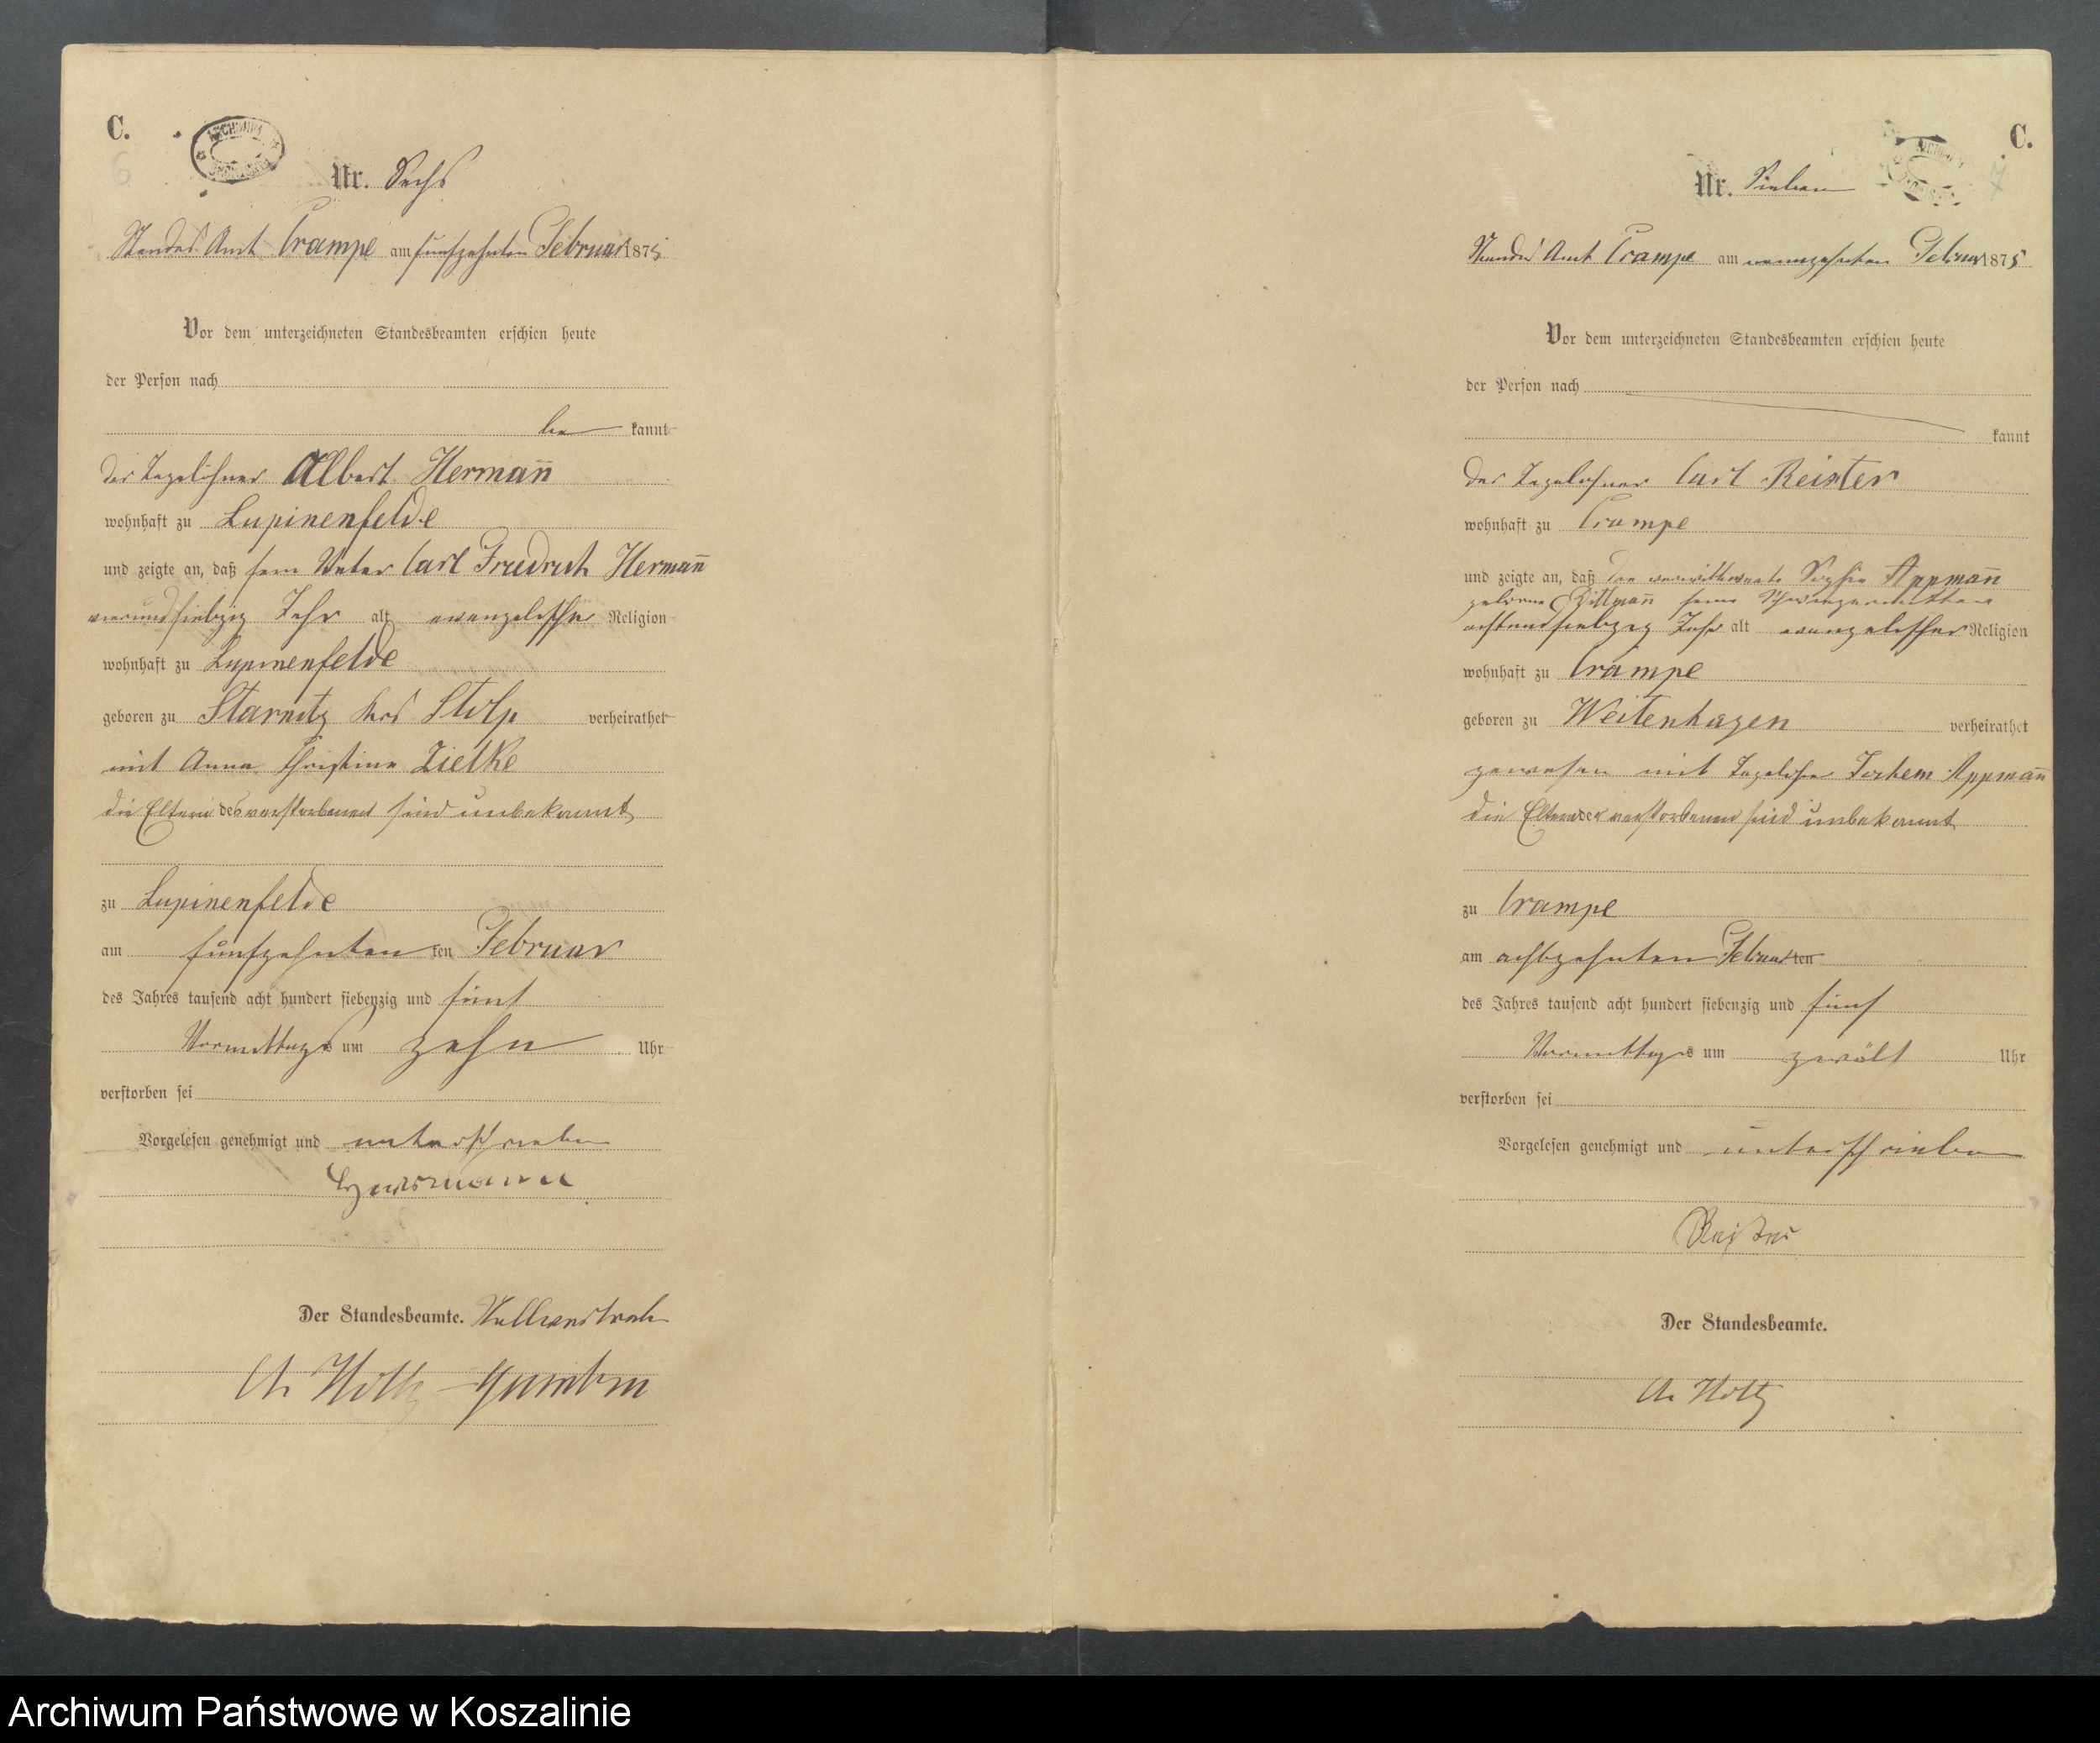 C.
Nr. Sechs
Standes Amt Crampe am fünfzehnten Februar 1875
Vor dem unterzeichneten Standesbeamten erschien heute
der Person nach
be kannt
der Tagelöhner Albert Hermañ
wohnhaft zu Lupinenfelde
und zeigte an, daß sein Vater Carl Friedrich Hermañ
vierundsiebzig Jahr alt evangelischer Religion
wohnhaft zu Lupinenfelde
geboren zu Starnitz Krs Stolp verheirathet
mit Anna Christine Zielke
die Eltern des verstorbenen sind unbekannt
zu Lupinenfelde
am fünfzehnten ten Februar
des Jahres tausend acht hundert siebenzig und fünf
Vormittags um zehn Uhr
verstorben sei
Vorgelesen genehmigt und unterschrieben
Hermann
Der Standesbeamte.
A. Holtz
C.
Nr. Sieben
Standes Amt Crampe am neunzehnten Februar 1875
Vor dem unterzeichneten Standesbeamten erschien heute
der Person nach
kannt
der Tagelöhner Carl Reister
wohnhaft zu Crampe
und zeigte an, daß die verwittwete Sophie Appmañ
geborene Dittmañ seine Schwiegermutter
achtundsiebzig Jahr alt evangelischer Religion
wohnhaft zu Crampe
geboren zu Weitenhagen verheirathet
gewesen mit Tagelöhner Jochem Appmañ
die Eltern der verstorbenen sind unbekannt
zu Crampe
am achtzehnten Februar ten
des Jahres tausend acht hundert siebenzig und fünf
Vormittags um zwölf Uhr
verstorben sei
Vorgelesen genehmigt und unterschrieben
Reister
Der Standesbeamte.
A. Holtz
Archiwum Państwowe w Koszalinie